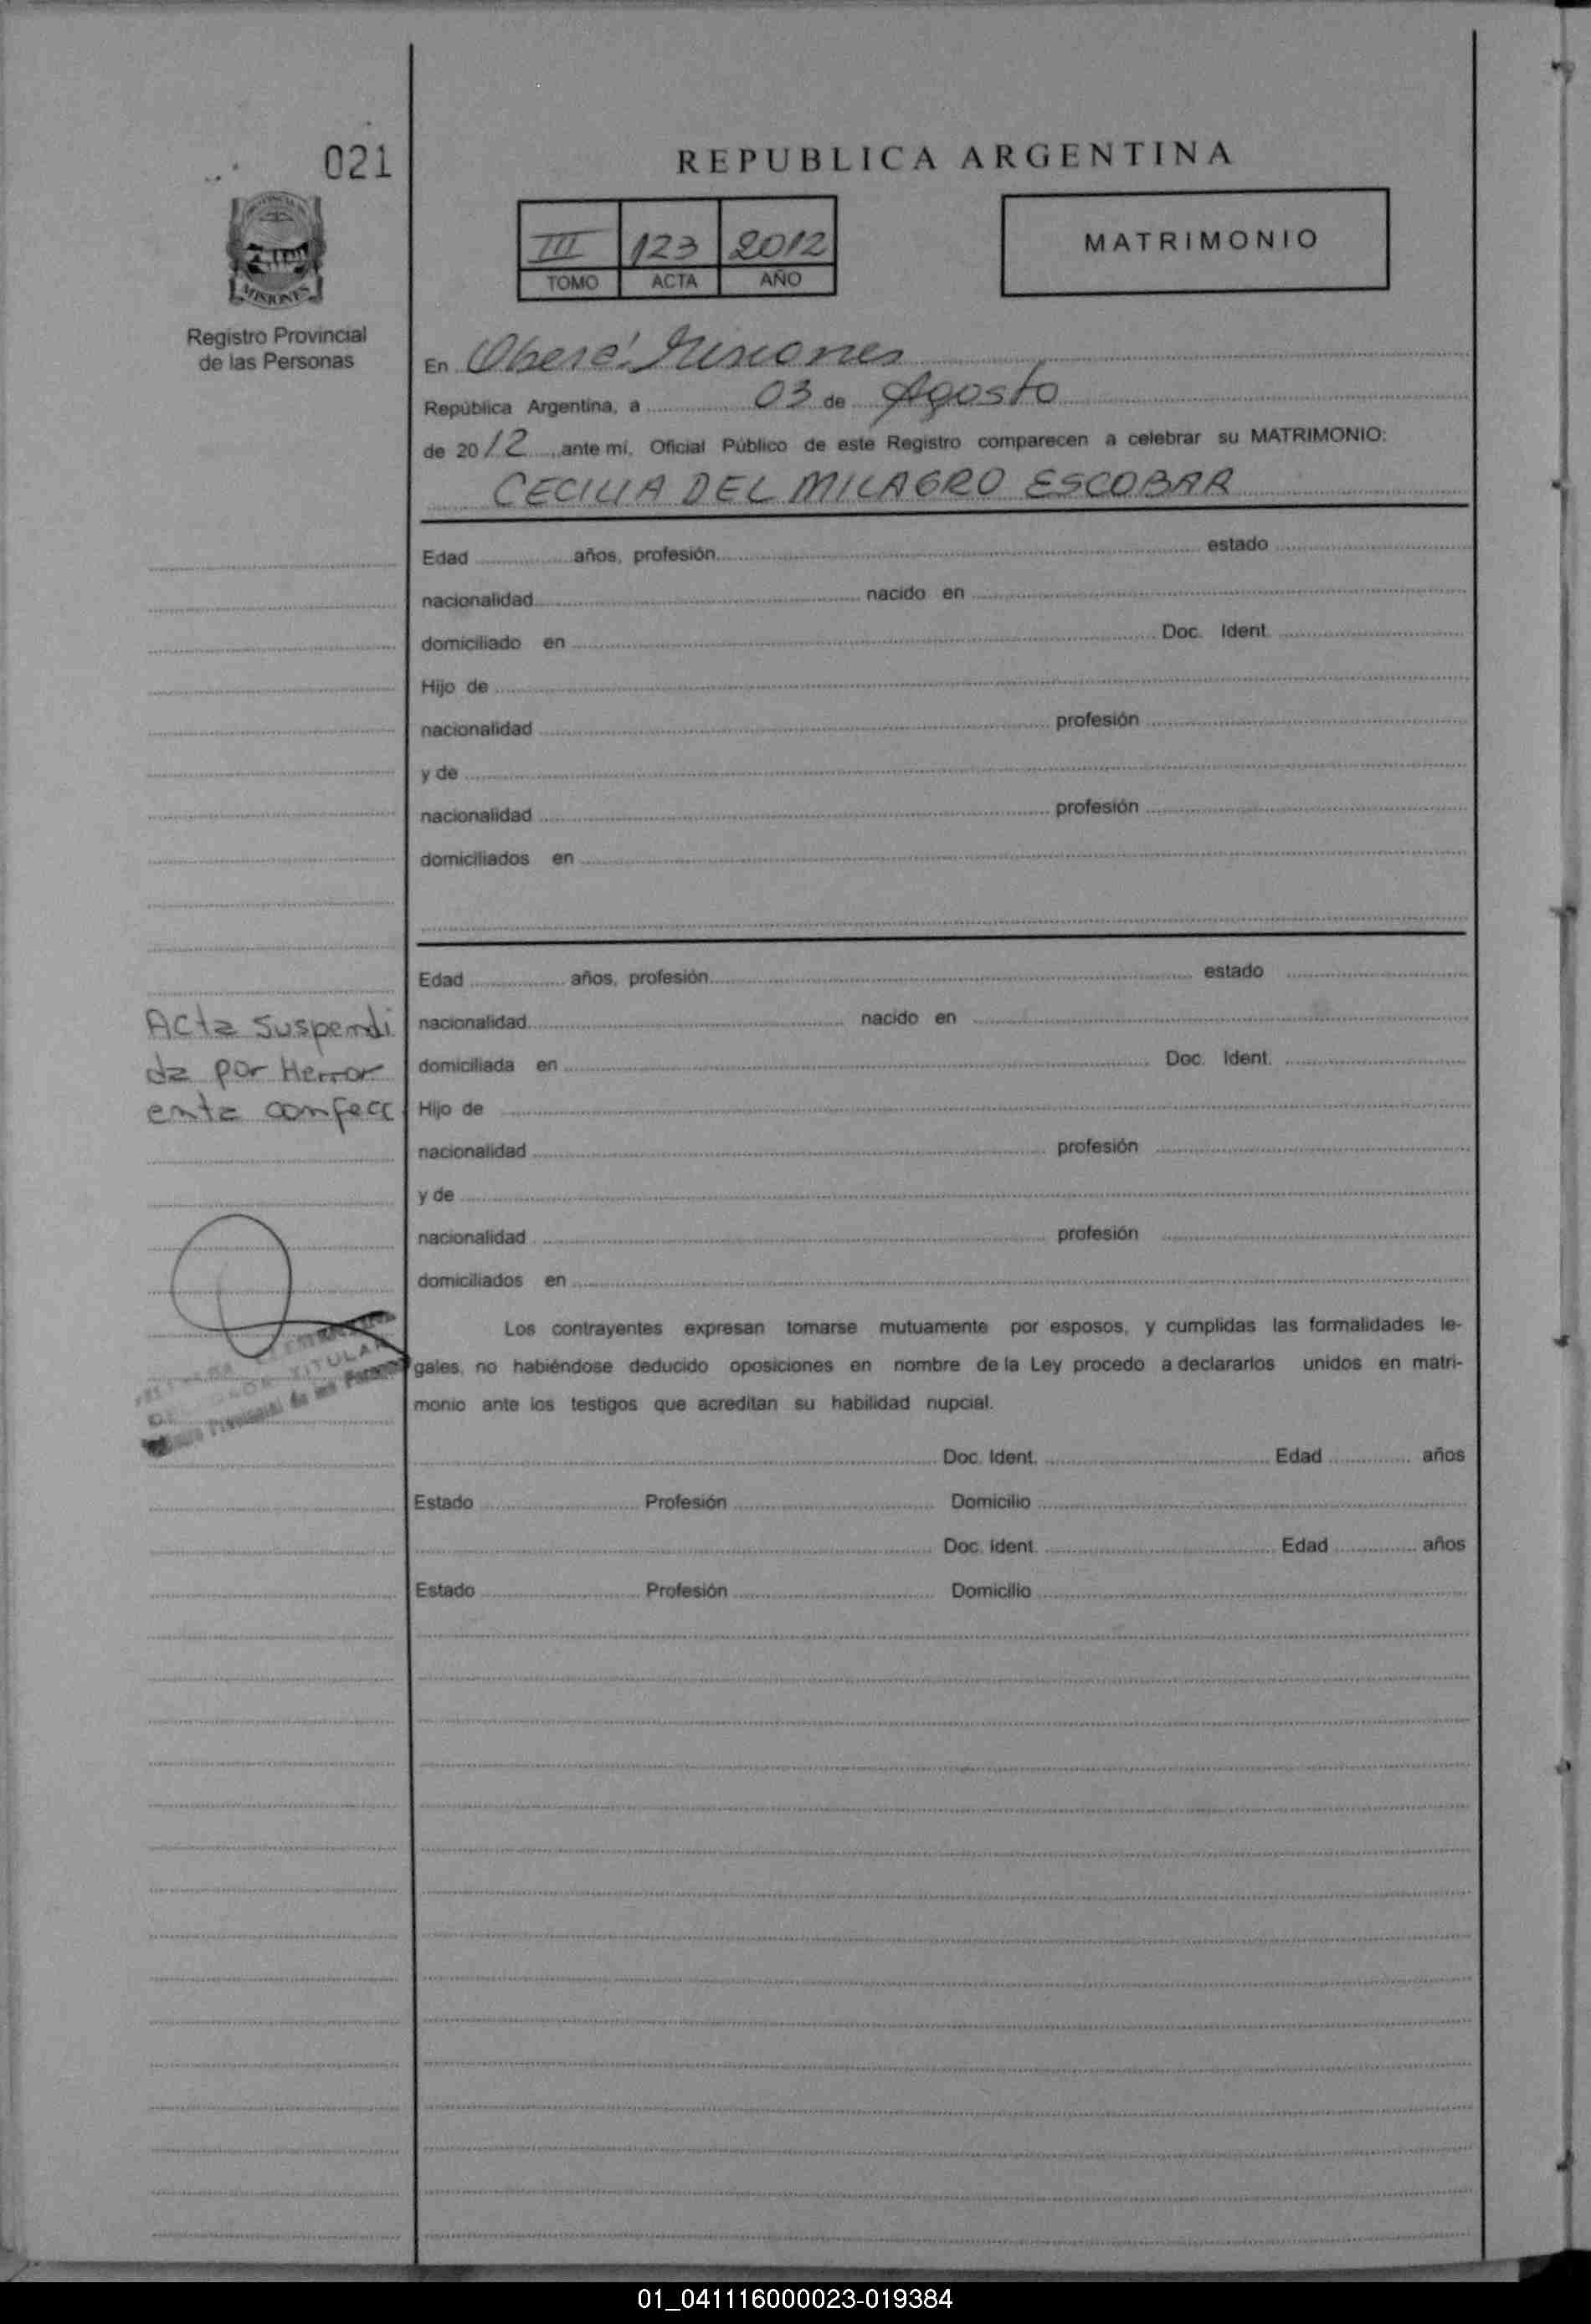 021
REPUBLICA ARGENTINA
MISIONES
Registro Provincial
de las Personas
III 123 2012
TOMO ACTA AÑO
MATRIMONIO
En Oberá Misiones
República Argentina, a 03 de Agosto
de 2012 ante mí, Oficial Público de este Registro comparecen a celebrar su MATRIMONIO:
CECILIA DEL MILAGRO ESCOBAR
Edad años, profesión estado
nacionalidad nacido en
domiciliado en Doc. Ident.
Hijo de
nacionalidad profesión
y de
nacionalidad profesión
domiciliados en
Edad años, profesión estado
nacionalidad nacido en
domiciliada en Doc. Ident.
Hijo de
nacionalidad profesión
y de
nacionalidad profesión
domiciliados en
Acta Suspendi
da por Herror
enta confecc
TITULAR
Provincial de las
Los contrayentes expresan tomarse mutuamente por esposos, y cumplidas las formalidades le-
gales, no habiéndose deducido oposiciones en nombre de la Ley procedo a declararlos unidos en matri-
monio ante los testigos que acreditan su habilidad nupcial.
Doc. Ident. Edad años
Estado Profesión Domicilio
Doc. Ident. Edad años
Estado Profesión Domicilio
01_041116000023-019384